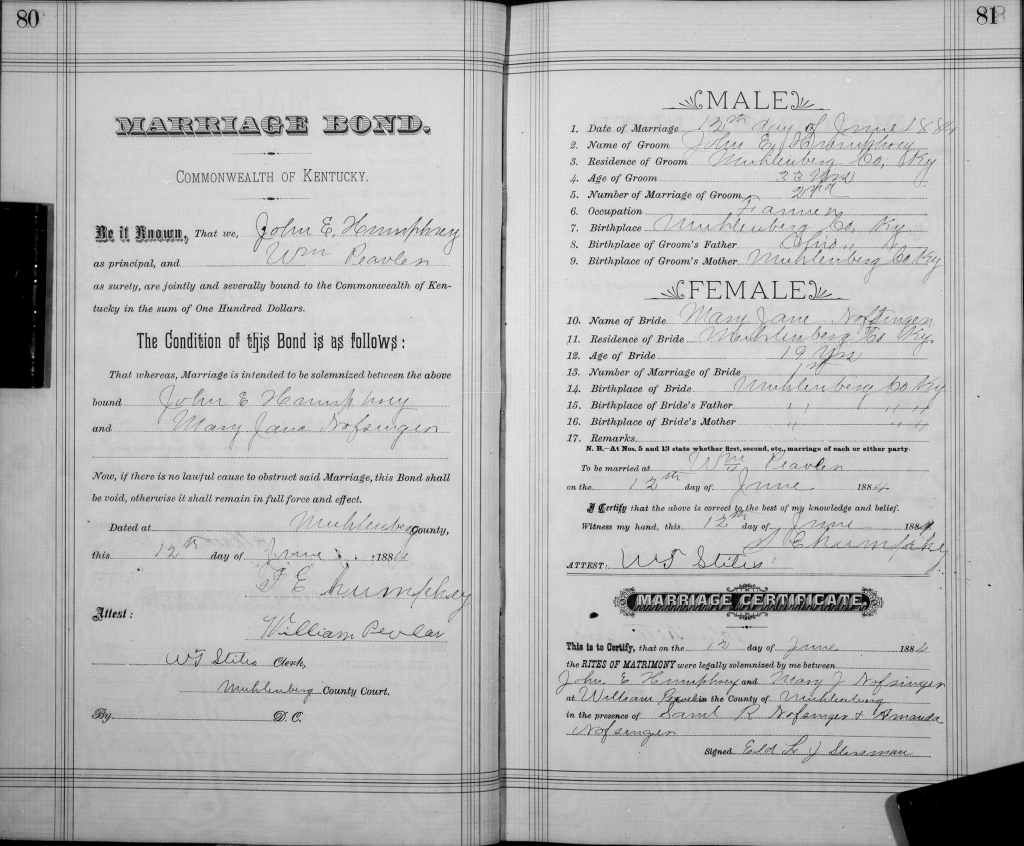 80
MARRIAGE BOND.
COMMONWEALTH OF KENTUCKY.
Be it Known, That we, John E. Humphrey
as principal, and Wm Peavler
as surety, are jointly and severally bound to the Commonwealth of Ken-
tucky in the sum of One Hundred Dollars.
The Condition of this Bond is as follows:
That whereas, Marriage is intended to be solemnized between the above
bound John E Humphrey
and Mary Jane Nofsinger
Now, if there is no lawful cause to obstruct said Marriage, this Bond shall
be void, otherwise it shall remain in full force and effect.
Dated at Muhlenberg County,
this 12th day of June 1884
J E humphrey
Attest:
William Pevlar
WT Stiles Clerk,
Muhlenberg County Court.
By D. C.
81
MALE
1. Date of Marriage 12th day of June 1884
2. Name of Groom John E, Humphrey
3. Residence of Groom Muhlenberg Co, Ky
4. Age of Groom 33 Yrs
5. Number of Marriage of Groom 2nd
6. Occupation Farmer
7. Birthplace Muhlenberg Co, Ky.
8. Birthplace of Groom's Father Ohio " "
9. Birthplace of Groom's Mother Muhlenberg Co Ky
FEMALE
10. Name of Bride Mary Jane Nofsinger
11. Residence of Bride Muhlenberg Co Ky.
12. Age of Bride 19 Yrs
13. Number of Marriage of Bride 1st
14. Birthplace of Bride Muhlenberg Co Ky
15. Birthplace of Bride's Father " " " "
16. Birthplace of Bride's Mother " " " "
17. Remarks
N. B.—At Nos. 5 and 13 state whether first, second, etc., marriage of each or either party.
To be married at Wm Peavler
on the 12th day of June 1884
I Certify that the above is correct to the best of my knowledge and belief.
Witness my hand, this 12th day of June 1884
J E humphrey
ATTEST: WT Stiles
MARRIAGE CERTIFICATE.
This is to Certify, that on the 12 day of June 1884
the RITES OF MATRIMONY were legally solemnized by me between
John. E Humphrey and Mary J Nofsinger
at William in the County of Muhlenburg
in the presence of Saml R Nofsinger & Amanda
Nofsinger
Signed Eld J